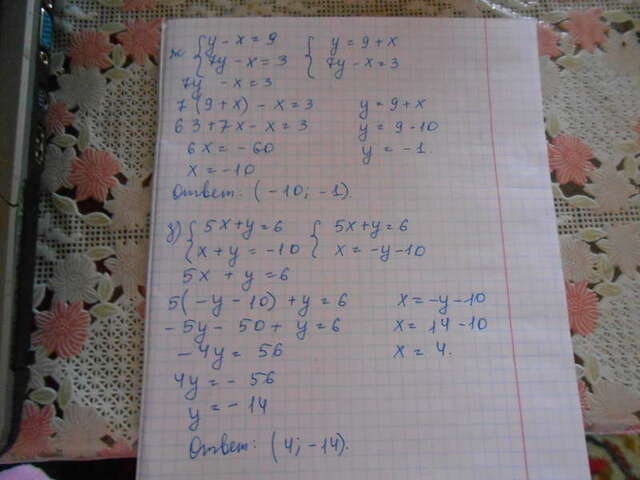 ж) { y - x = 9 { y = 9 + x
7y - x = 3 7y - x = 3
7y - x = 3
7(9 + x) - x = 3 y = 9 + x
63 + 7x - x = 3 y = 9 - 10
6x = - 60 y = - 1
x = - 10
Ответ: (- 10; - 1).
з) { 5x + y = 6 { 5x + y = 6
x + y = - 10 x = - y - 10
5x + y = 6
5(- y - 10) + y = 6 x = - y - 10
- 5y - 50 + y = 6 x = 14 - 10
- 4y = 56 x = 4.
4y = - 56
y = - 14
Ответ: (4; - 14).